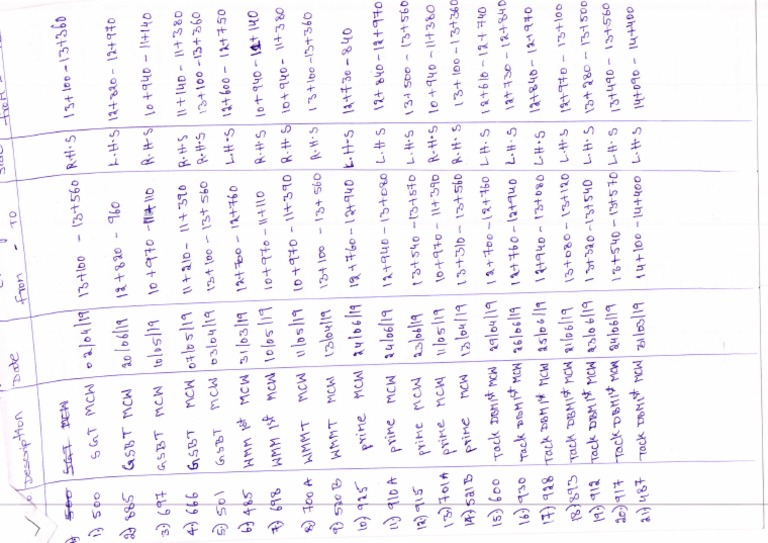 Description Date From - TO Side From
500 SGT
1) 500 SGT MCW 02/04/19 13+100 - 13+560 R.H.S 13+100 - 13+360
2) 885 GSBT MCW 20/06/19 12+820 - 960 L.H.S 12+820 - 12+970
3) 697 GSBT MCW 10/05/19 10+970 - 11+110 R.H.S 10+940 - 11+140
4) 666 GSBT MCW 07/05/19 11+210 - 11+390 R.H.S 11+140 - 11+380
5) 501 GSBT MCW 03/04/19 13+100 - 13+560 R.H.S 13+100 - 13+360
6) 485 WMM 1st MCW 31/03/19 12+700 - 12+760 L.H.S 12+600 - 12+750
7) 698 WMM 1st MCW 10/05/19 10+970 - 11+110 R.H.S 10+940 - 11+140
8) 700A WMMT MCW 11/05/19 10+970 - 11+390 R.H.S 10+940 - 11+380
9) 520B WMMT MCW 13/04/19 13+100 - 13+560 R.H.S 13+100 - 13+360
10) 925 prime MCW 24/06/19 12+760 - 12+940 L.H.S 12+730 - 840
11) 910A prime MCW 24/06/19 12+940 - 13+080 L.H.S 12+840 - 12+970
12) 915 prime MCW 23/06/19 13+540 - 13+570 L.H.S 13+500 - 13+560
13) 701A prime MCW 11/05/19 10+970 - 11+390 R.H.S 10+940 - 11+380
14) 521B prime MCW 13/04/19 13+310 - 13+560 R.H.S 13+100 - 13+360
15) 600 Tack DBM 1st MCW 29/04/19 12+700 - 12+760 L.H.S 12+610 - 12+740
16) 930 Tack DBM 1st MCW 26/06/19 12+760 - 12+940 L.H.S 12+730 - 12+840
17) 928 Tack DBM 1st MCW 25/06/19 12+940 - 13+080 L.H.S 12+840 - 12+970
18) 893 Tack DBM 1st MCW 21/06/19 13+080 - 13+120 L.H.S 12+970 - 13+100
19) 912 Tack DBM 1st MCW 23/06/19 13+320 - 13+540 L.H.S 13+280 - 13+500
20) 917 Tack DBM 1st MCW 24/06/19 13+540 - 13+570 L.H.S 13+490 - 13+560
21) 487 Tack DBM 1st MCW 31/03/19 14+100 - 14+400 L.H.S 14+090 - 14+400